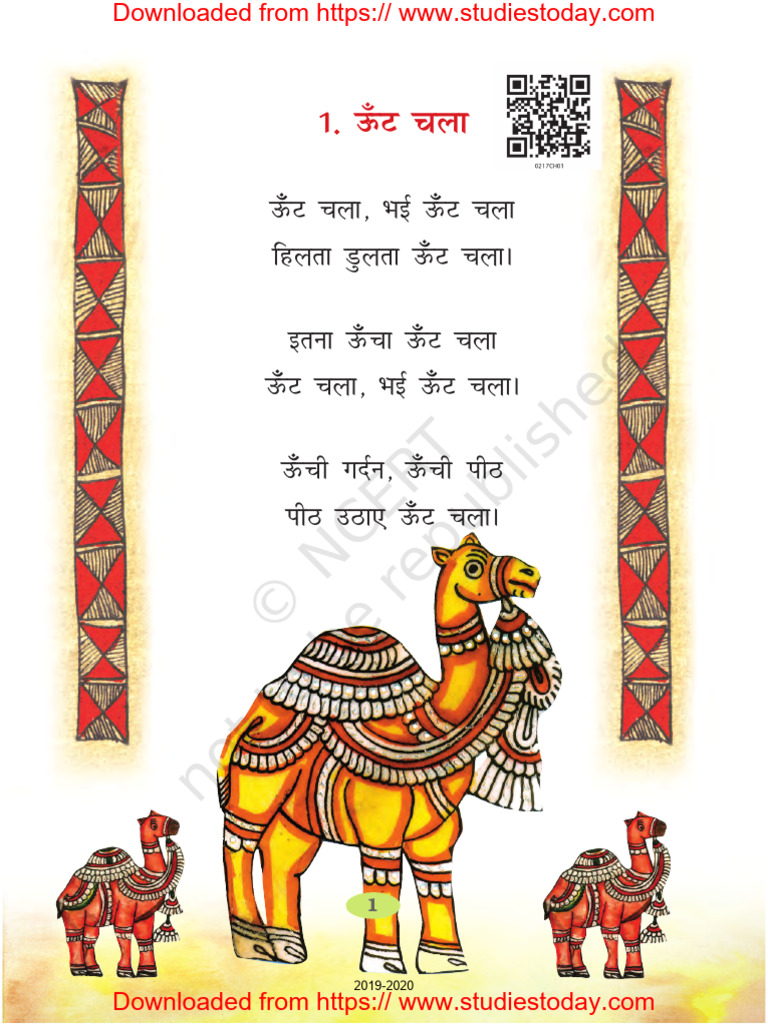 Downloaded from https:// www.studiestoday.com
1. ऊँट चला
0217CH01
ऊँट चला, भई ऊँट चला
हिलता डुलता ऊँट चला।
इतना ऊँचा ऊँट चला
ऊँट चला, भई ऊँट चला।
ऊँची गर्दन, ऊँची पीठ
पीठ उठाए ऊँट चला।
© NCERT
not to be republished
1
2019-2020
Downloaded from https:// www.studiestoday.com